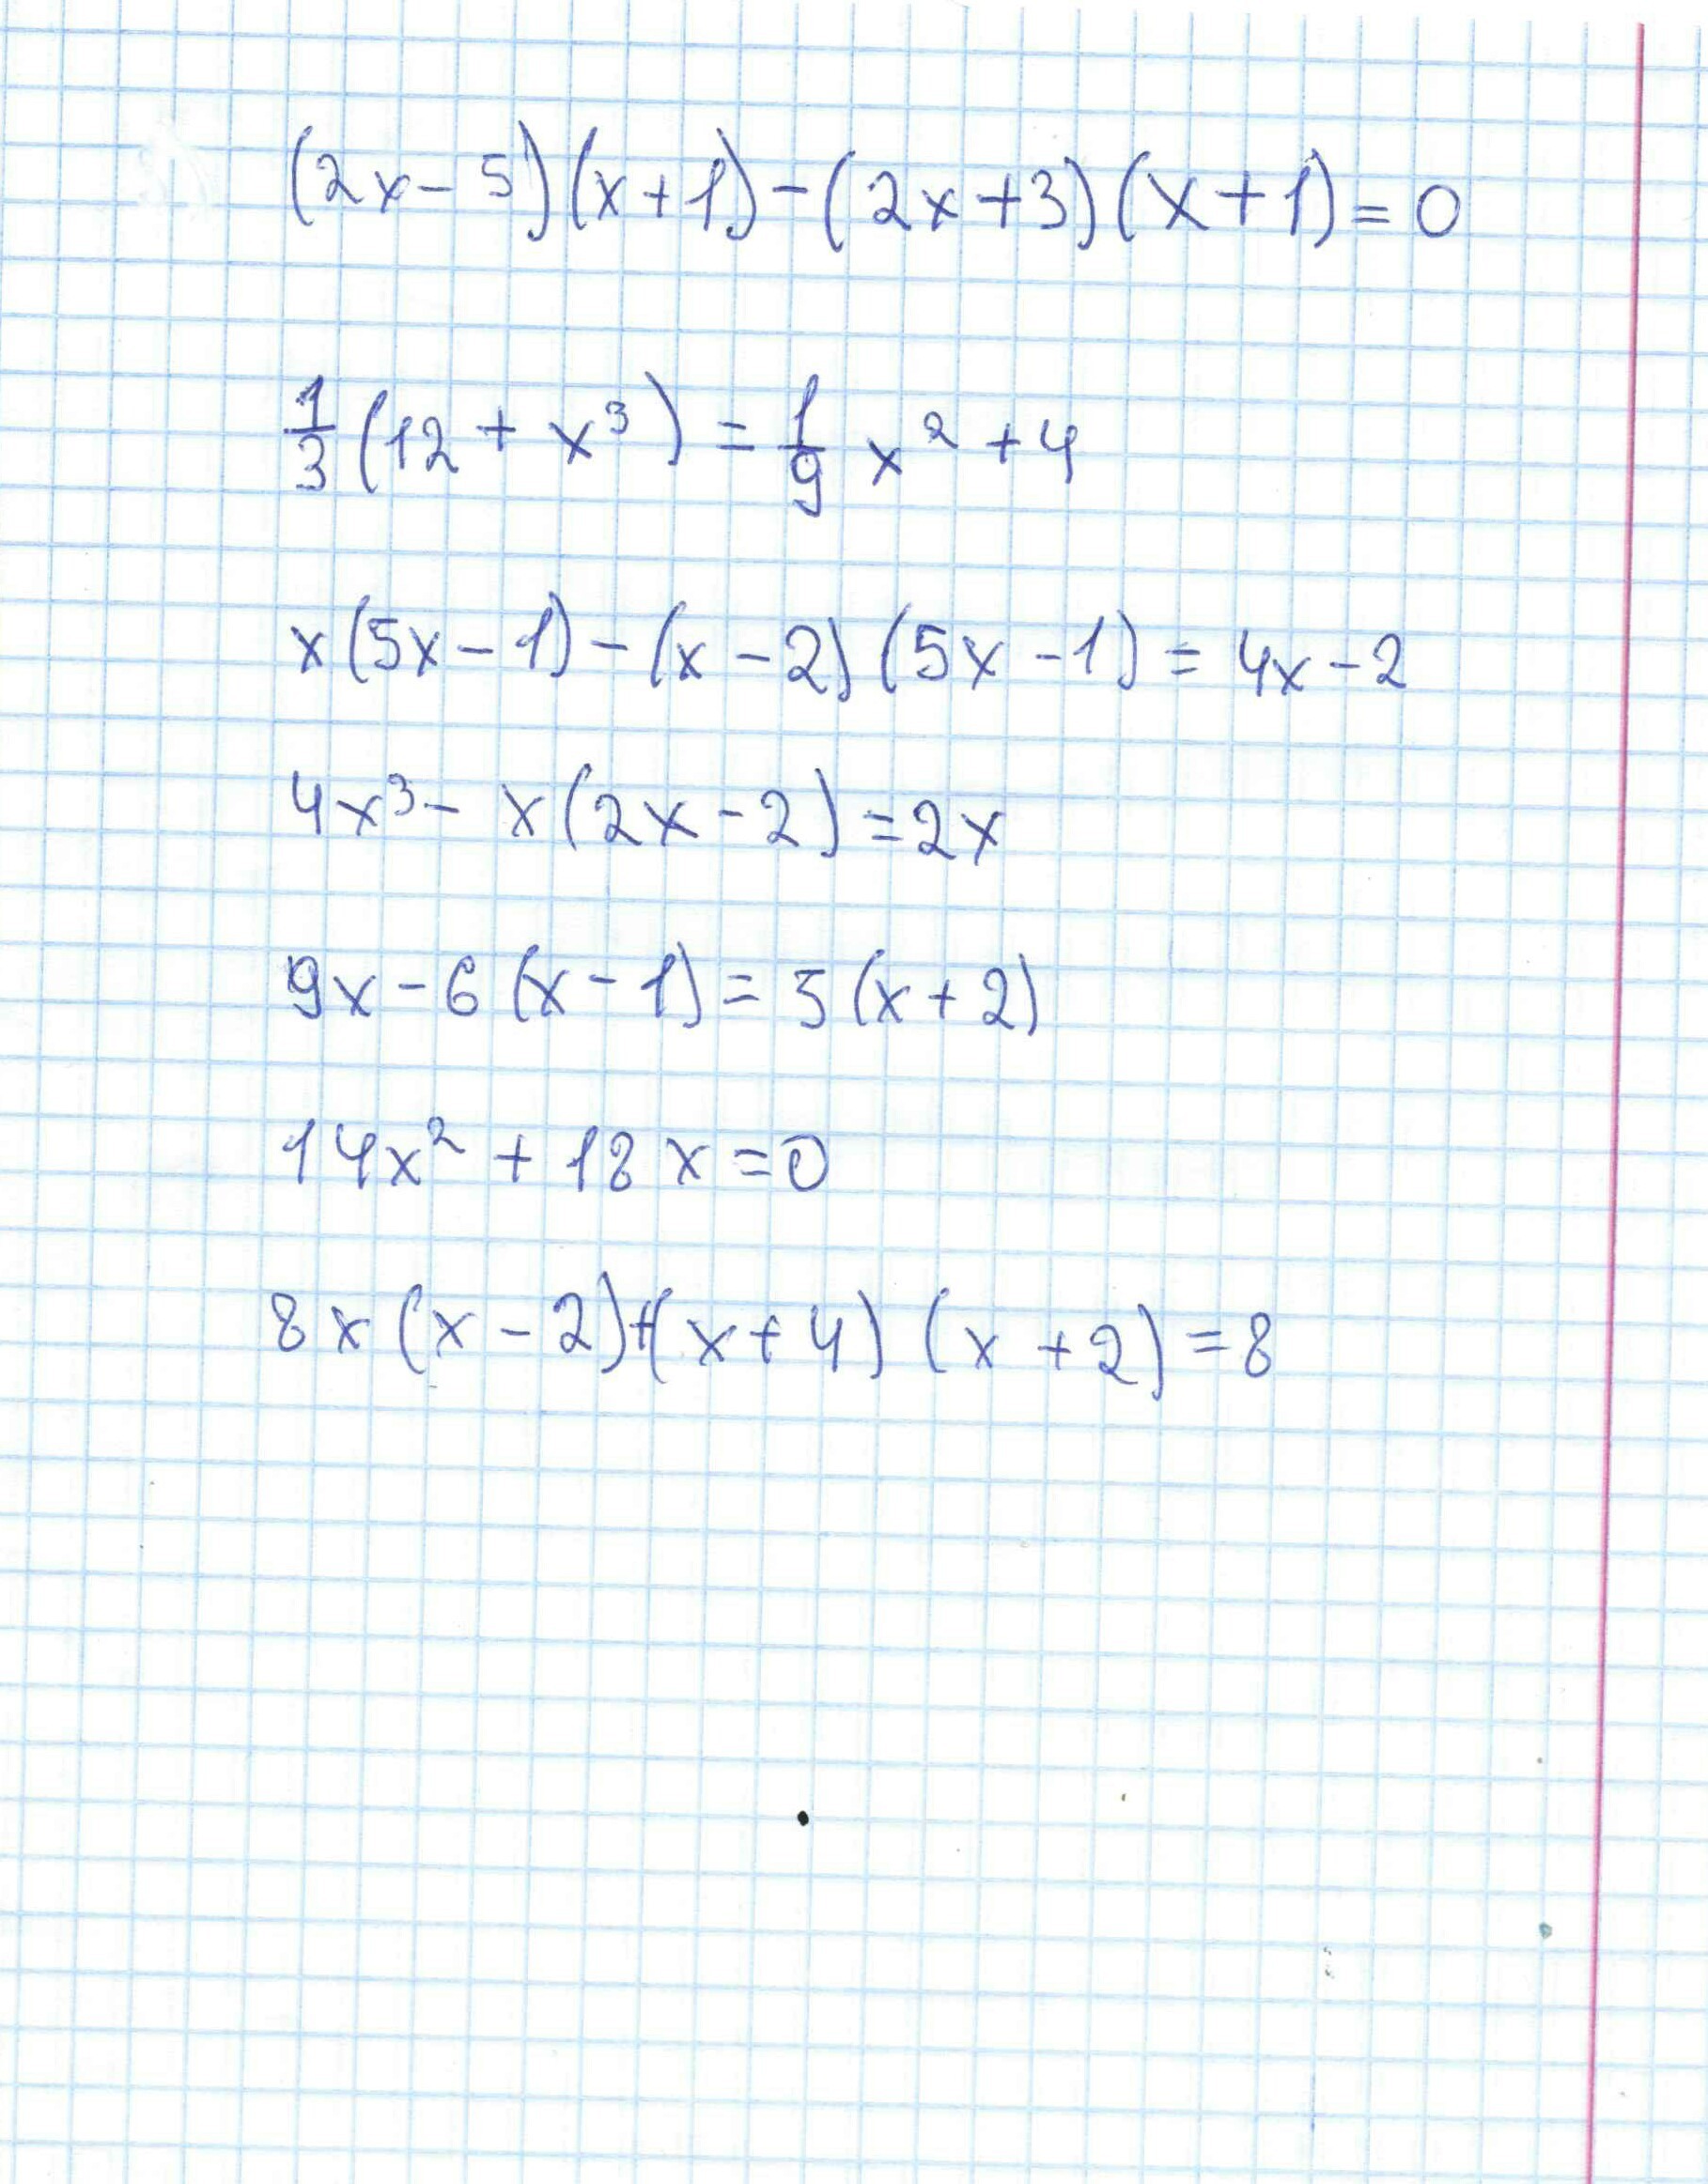 (2x-5)(x+1)-(2x+3)(x+1)=0
1/3(12+x³)=1/9x²+4
x(5x-1)-(x-2)(5x-1)=4x-2
4x³-x(2x-2)=2x
9x-6(x-1)=5(x+2)
14x²+18x=0
8x(x-2)+(x+4)(x+2)=8